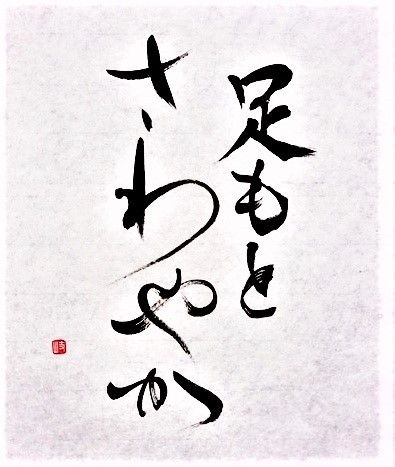 足もと
さわやか